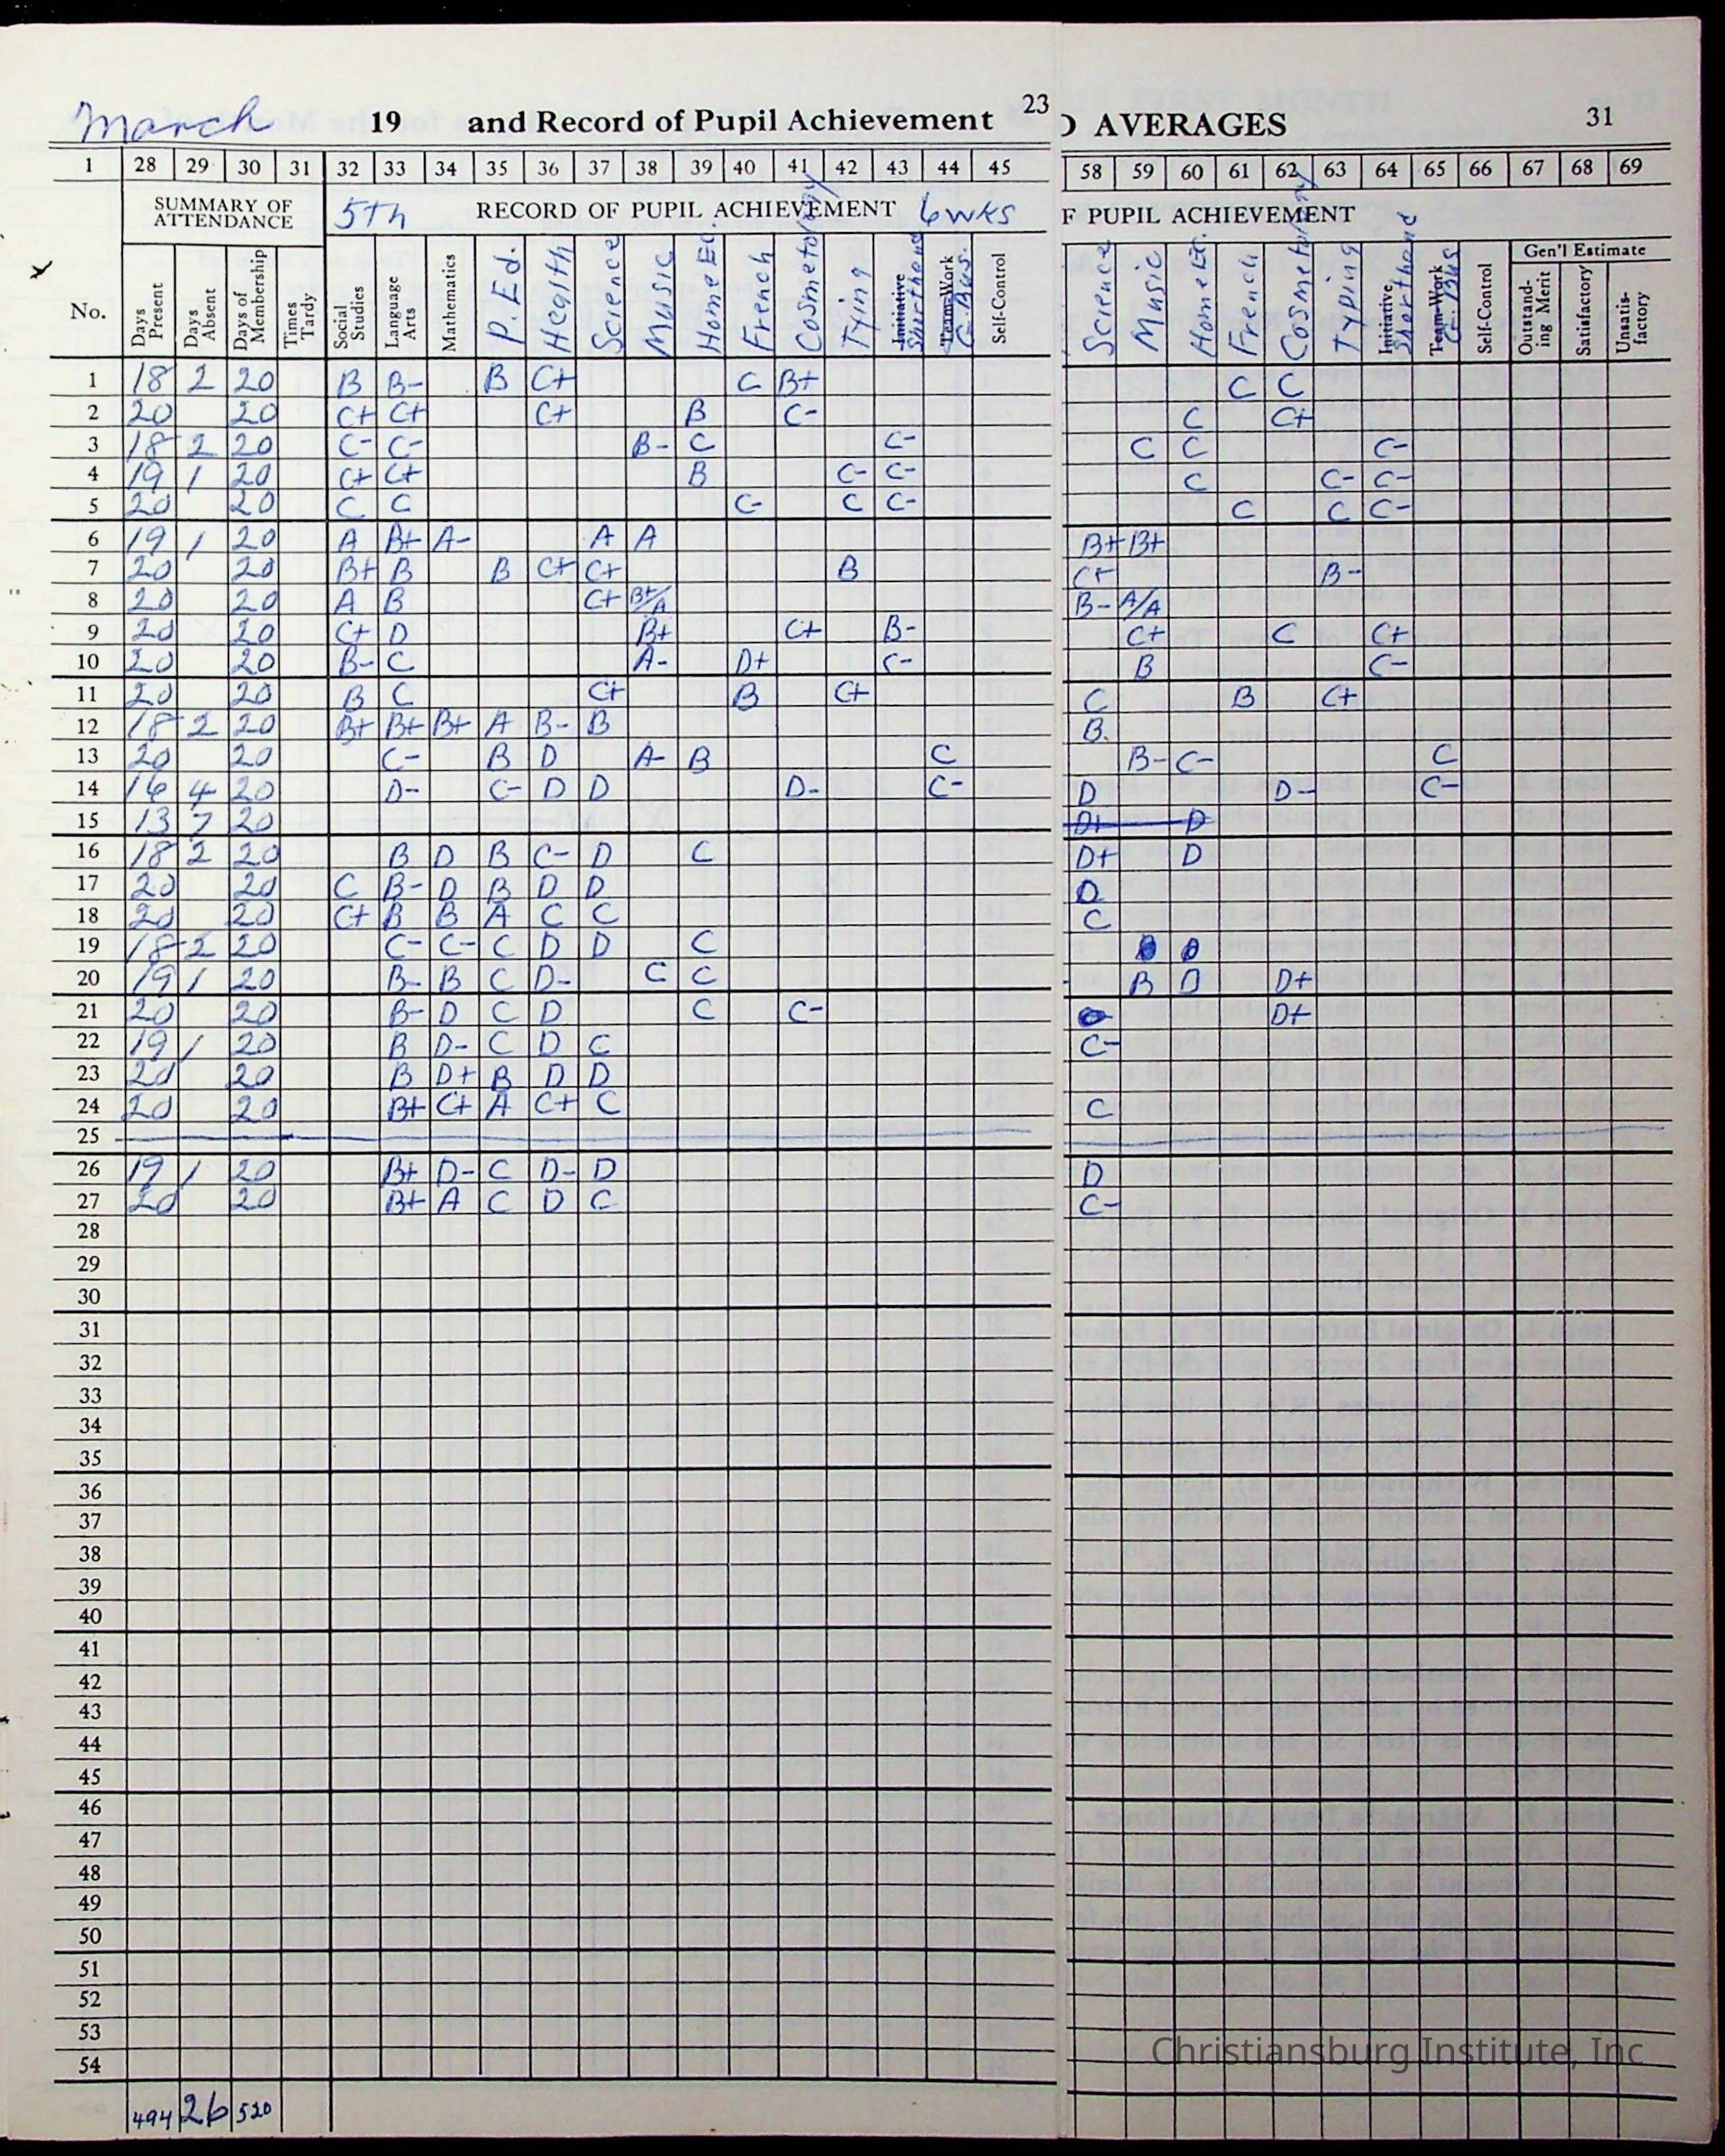 March 19 and Record of Pupil Achievement 23 D AVERAGES 31
1 28 29 30 31 32 33 34 35 36 37 38 39 40 41 42 43 44 45 58 59 60 61 62 63 64 65 66 67 68 69
SUMMARY OF ATTENDANCE 5th RECORD OF PUPIL ACHIEVEMENT 6 wks F PUPIL ACHIEVEMENT
Gen'l Estimate
No. Days Present Days Absent Days of Membership Times Tardy Social Studies Language Arts Mathematics P. Ed. Health Science Music Home Ec. French Cosmetology Tying Initiative Shorthand Team-Work G. Bus. Self-Control Science Music Home Ec. French Cosmetology Typing Initiative Shorthand Team-Work G. Bus Self-Control Outstand-ing Merit Satisfactory Unsatis-factory
1 18 2 20 B B- B C+ C B+ C C
2 20 20 C+ C+ C+ B C- C C+
3 18 2 20 C- C- B- C C- C C C-
4 19 1 20 C+ C+ B C- C- C C- C-
5 20 20 C C C- C C- C C C-
6 19 1 20 A B+ A- A A B+ B+
7 20 20 B+ B B C+ C+ B C+ B-
8 20 20 A B C+ B+/A B- A/A
9 20 20 C+ D B+ C+ B- C+ C C+
10 20 20 B- C A- D+ C- B C-
11 20 20 B C C+ B C+ C B C+
12 18 2 20 B+ B+ B+ A B- B B.
13 20 20 C- B D A- B C B- C- C
14 16 4 20 D- C- D D D- C- D D- C-
15 13 7 20 D+ D
16 18 2 20 B D B C- D C D+ D
17 20 20 C B- D B D D D
18 20 20 C+ B B A C C C
19 18 2 20 C- C- C D D C
20 19 1 20 B- B C D- C C B D D+
21 20 20 B- D C D C C- D+
22 19 1 20 B D- C D C C-
23 20 20 B D+ B D D
24 20 20 B+ C+ A C+ C C
25
26 19 1 20 B+ D- C D- D D
27 20 20 B+ A C D C C-
28
29
30
31
32
33
34
35
36
37
38
39
40
41
42
43
44
45
46
47
48
49
50
51
52
53
54
Christiansburg Institute, Inc
494 26 520